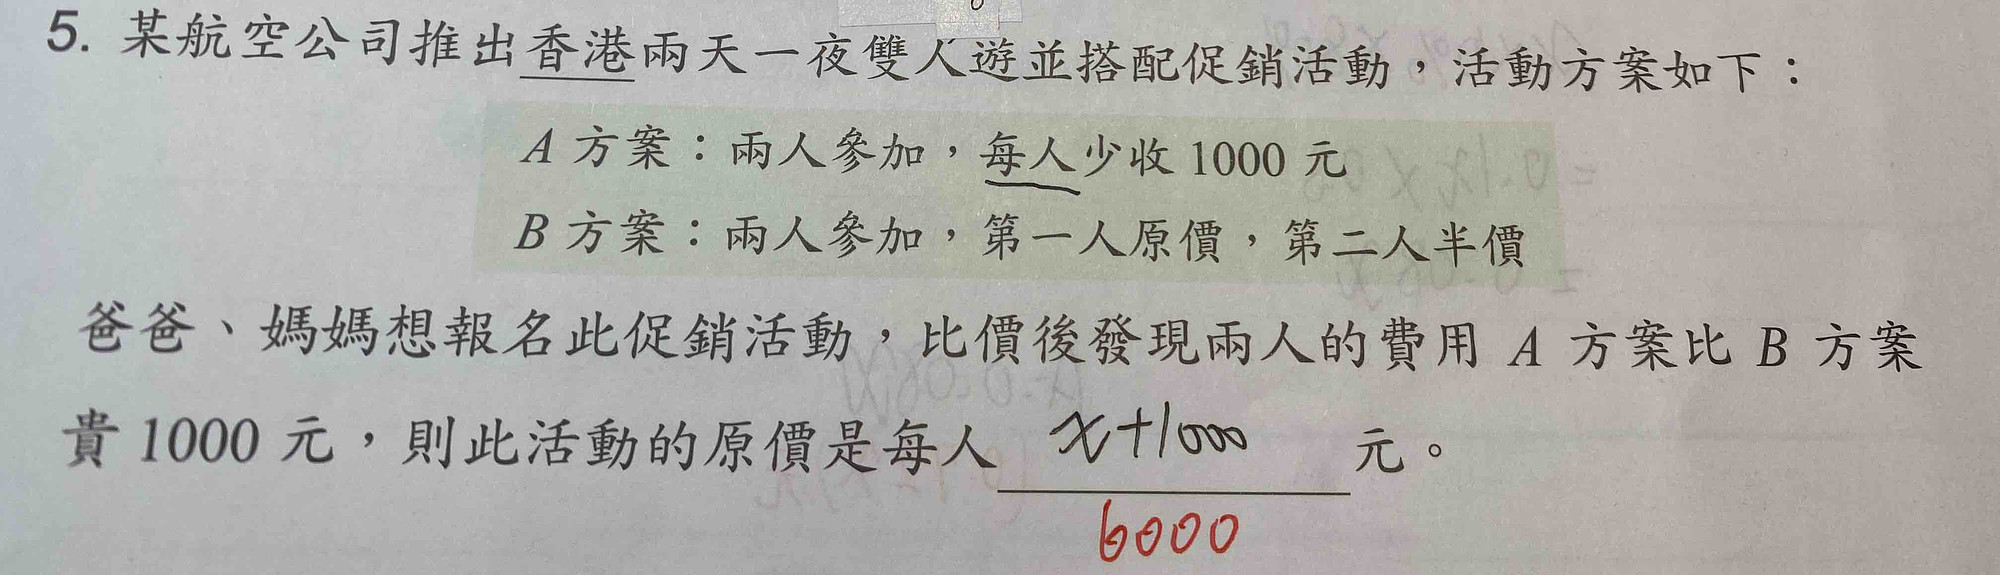 5. 某航空公司推出香港兩天一夜雙人遊並搭配促銷活動，活動方案如下：
A 方案：兩人參加，每人少收 1000 元
B 方案：兩人參加，第一人原價，第二人半價
爸爸、媽媽想報名此促銷活動，比價後發現兩人的費用 A 方案比 B 方案
貴 1000 元，則此活動的原價是每人 x+1000 元。
6000